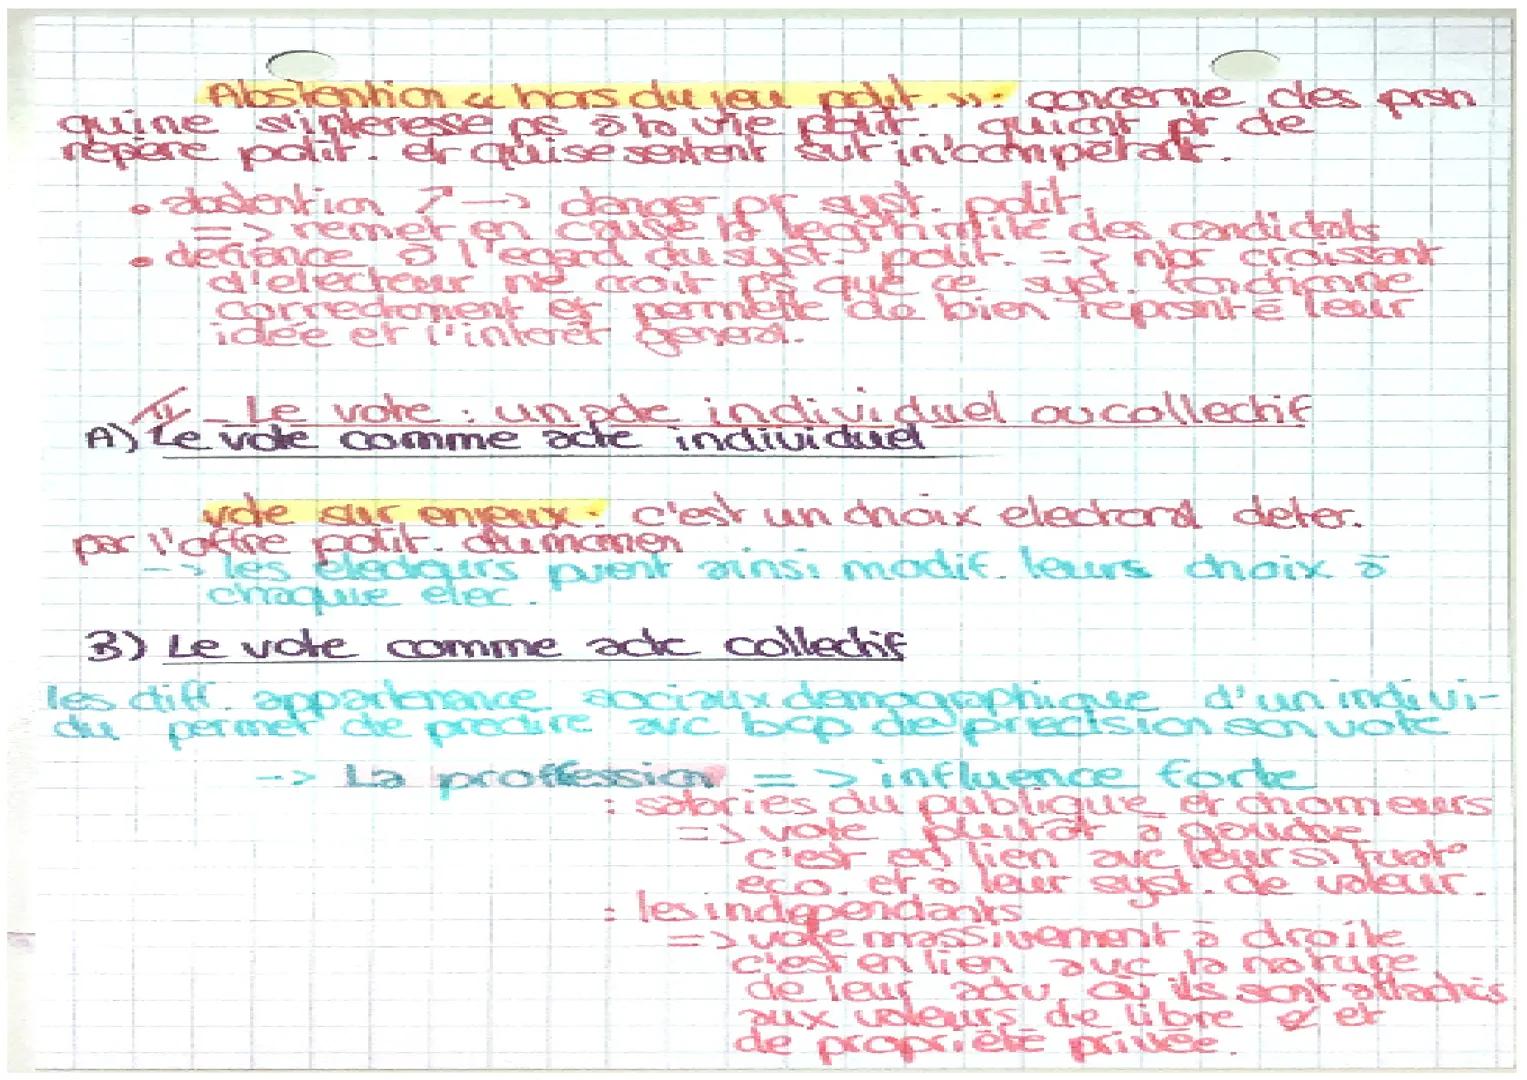 Abstention « hors du jeu polit. »: concerne des prsn
qui ne s'interesse ps à la vie polit. qui ont pr de
repère polit. et qui se sentent surt incompétant.
• abstention ↗ --> danger pr syst. polit
=> remet en cause la légitimité des candidats
• défiance à l'egard du syst. polit. => nbr croissant
d'electeur ne croit ps que ce syst. fonctionne
correctement et permette de bien reprsnté leur
idée et l'intérêt general.
II _ Le vote : un acte individuel ou collectif
A) Le vote comme acte individuel
vote sur enjeux : c'est un choix electoral deter.
par l'offre polit. du momen
--> les electeurs pvent ainsi modif. leurs choix à
chaque elec.
B) Le vote comme acte collectif
les diff. appartenance sociaux demographique d'un indivi-
du permet de predire avc bcp de precision son vote
--> La proffession => influence forte
: salaries du publique et chomeurs
=> vote plutôt à gauche
c'est en lien avc leur situat°
eco. et à leur syst. de valeur.
: les independants
=> vote massivement à droite
c'est en lien avc la nature
de leur actv, où ils sont attachés
aux valeurs de libre é et
de propriété privée.